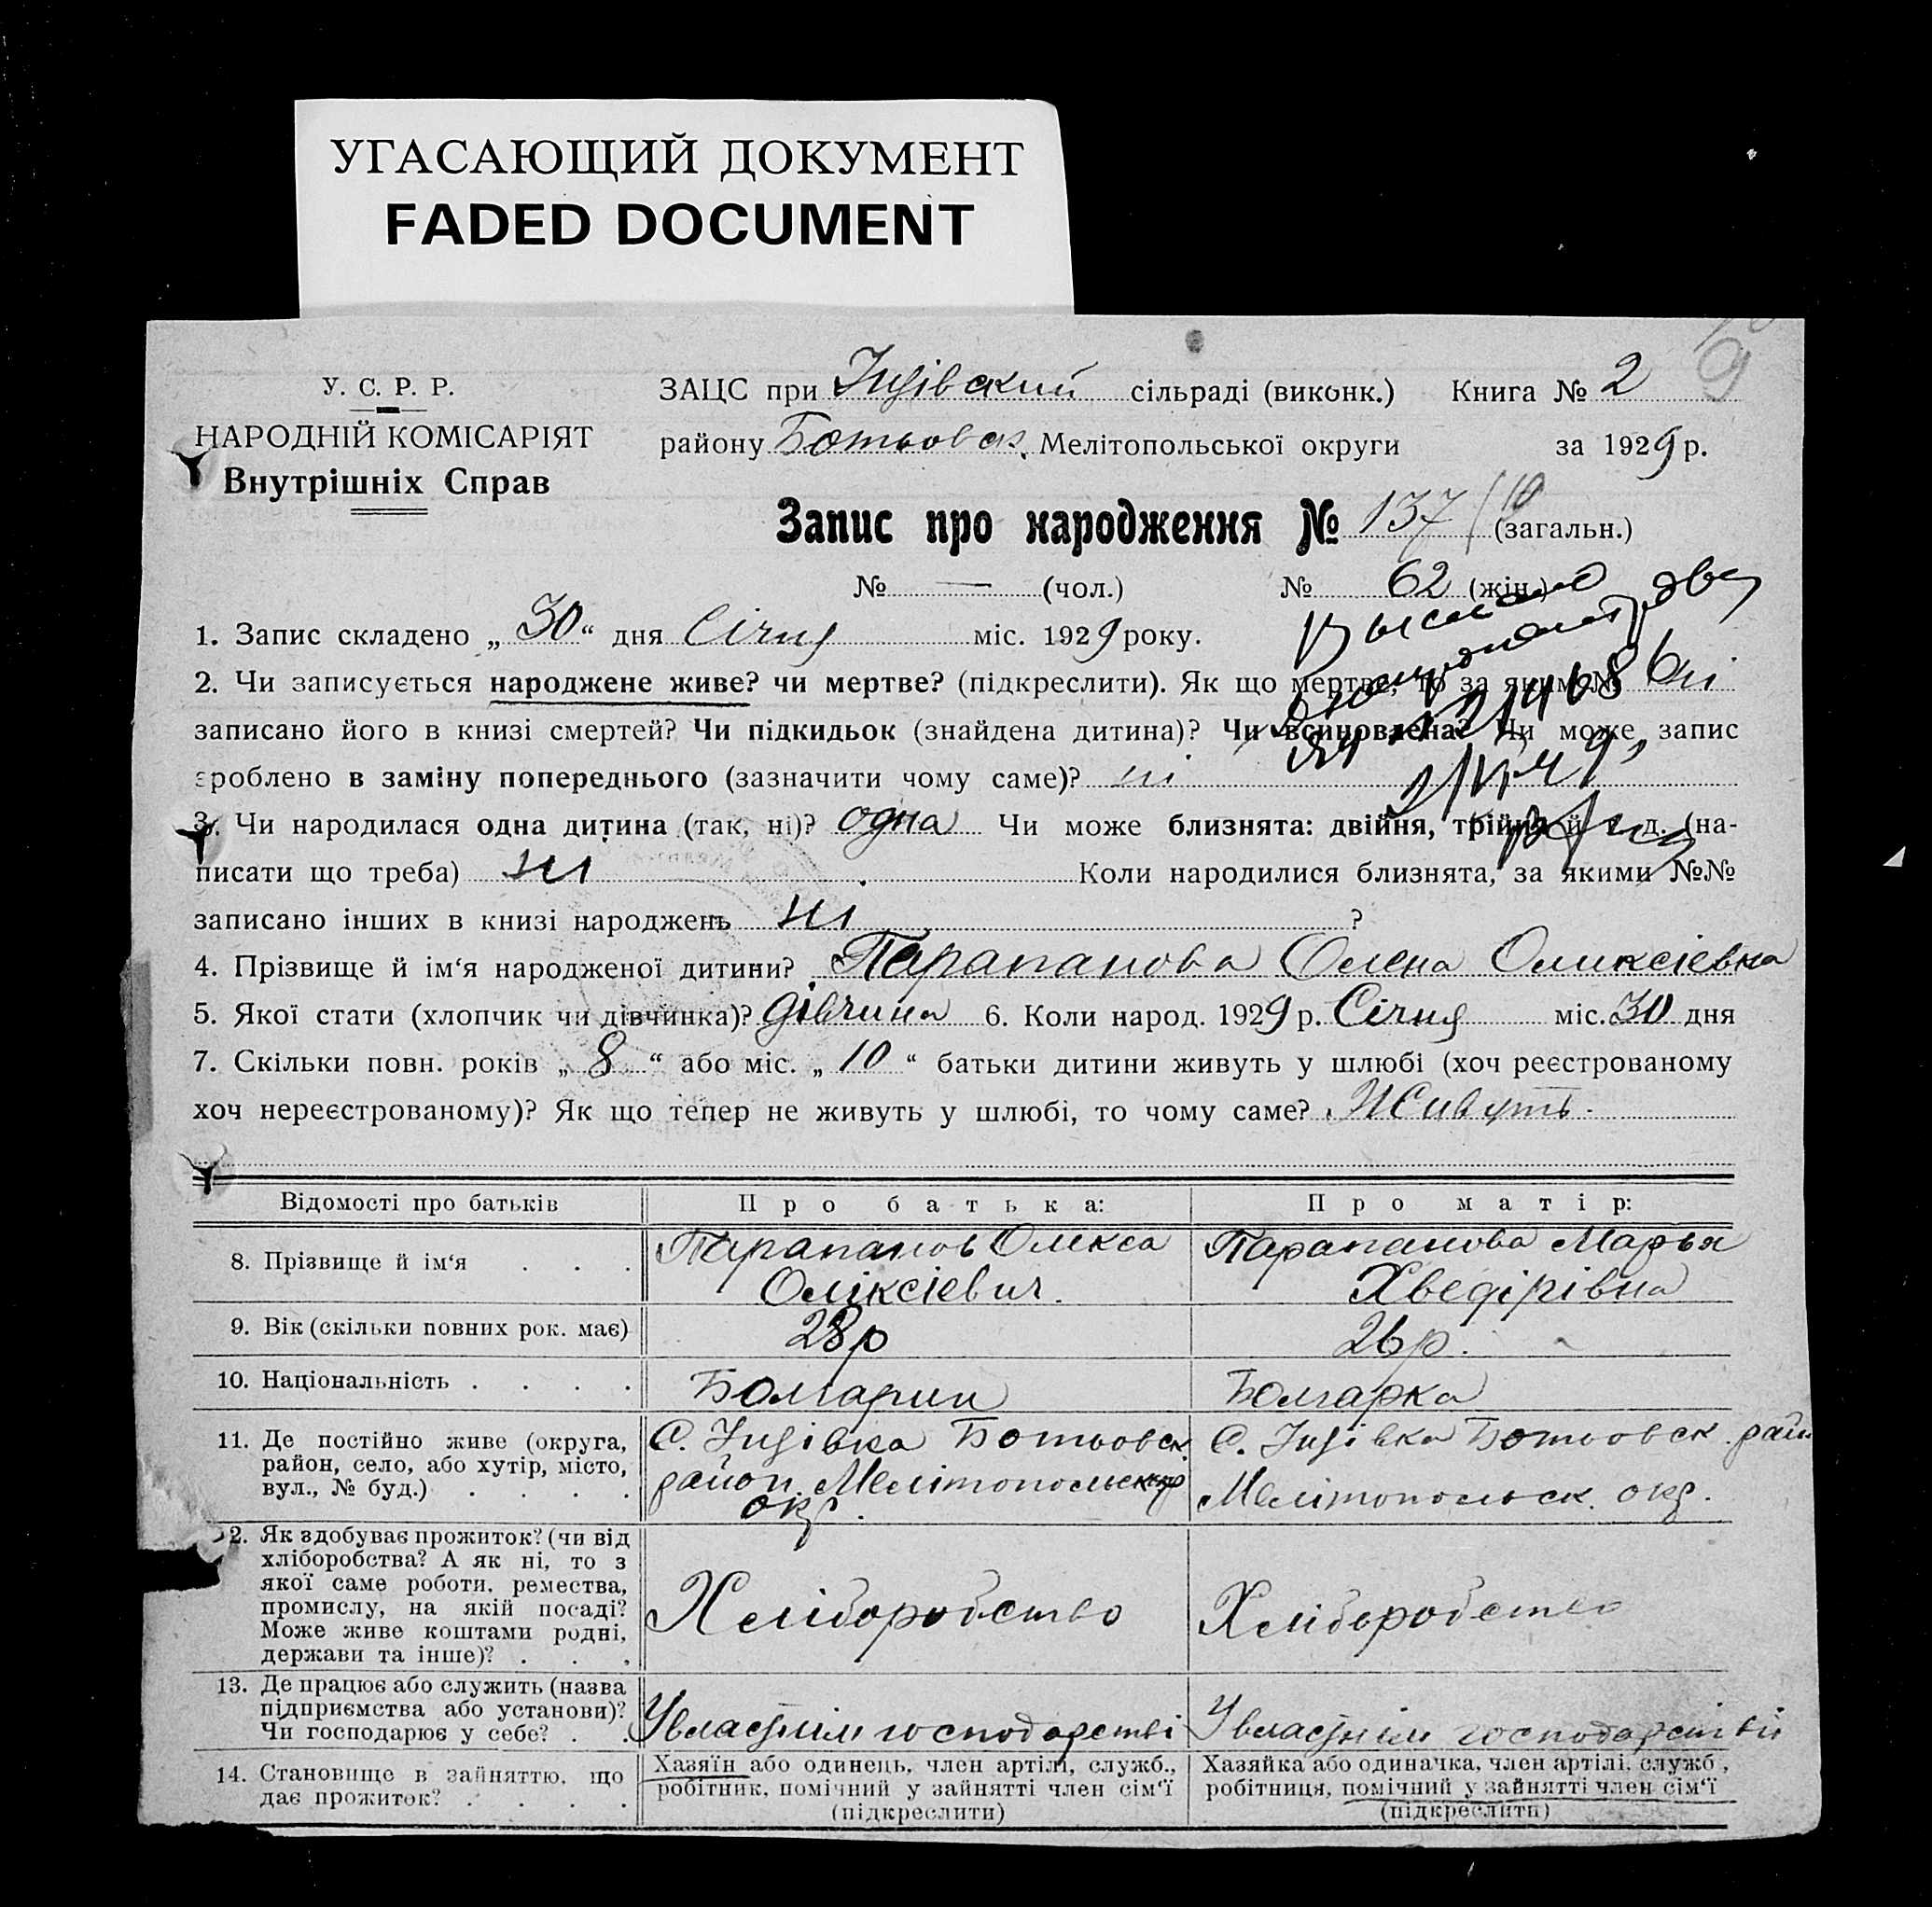 УГАСАЮЩИЙ ДОКУМЕНТ
FADED DOCUMENT
9
У. С. Р. Р.
НАРОДНІЙ КОМІСАРІЯТ
Внутрішніх Справ
ЗАЦС при Інзівский сільраді (виконк.) Книга № 2
району Ботьовск. Мелітопольської округи за 1929 р.
Запис про народження № 137/10 (загальн.)
№ — (чол.) № 62 (жін.)
1. Запис складено „30“ дня Січня міс. 1929 року.
2. Чи записується народжене живе? чи мертве? (підкреслити). Як що мертве, то за яким № ні
записано його в книзі смертей? Чи підкидьок (знайдена дитина)? Чи всиновлена? Чи може запис
зроблено в заміну попереднього (зазначити чому саме)? ні
3. Чи народилася одна дитина (так, ні)? одна Чи може близнята: двійня, трійня й т. д. (на-
писати що треба) ні Коли народилися близнята, за якими №№
записано інших в книзі народжень ні ?
4. Прізвище й ім‘я народженої дитини? Парапанова Олена Оликсіевна
5. Якої стати (хлопчик чи дівчинка)? дівчина 6. Коли народ. 1929 р. Січня міс. 30 дня
7. Скільки повн. років „8“ або міс. „10“ батьки дитини живуть у шлюбі (хоч реєстрованому
хоч нереєстрованому)? Як що тепер не живуть у шлюбі, то чому саме? Живуть.
Відомості про батьків Про батька: Про матір:
8. Прізвище й ім‘я . . . Парапанов Олекса Оліксіевич. Парапанова Марья Хведірівна
9. Вік (скільки повних рок. має) 28 р 26 р.
10. Національність . . . . Болгарин Болгарка
11. Де постійно живе (округа, район, село, або хутір, місто, вул., № буд.) . . . . С. Інзівка Ботьовск. район. Мелітопольск окр. С. Інзівка Ботьовск. райн Мелітопольск. окр.
12. Як здобуває прожиток? (чи від хліборобства? А як ні, то з якої саме роботи, ремества, промислу, на якій посаді? Може живе коштами родні, держави та інше)? . . . Хліборобство Хліборобство
13. Де працює або служить (назва підприємства або установи)? Чи господарює у себе? . . У власнім господарстві У власнім господарстві
14. Становище в зайняттю, що дає прожиток? . . . . Хазяїн або одинець, член артілі, служб., робітник, помічний у зайнятті член сім‘ї (підкреслити) Хазяйка або одиначка, член артілі, служб., робітниця, помічний у зайнятті член сім‘ї (підкреслити)